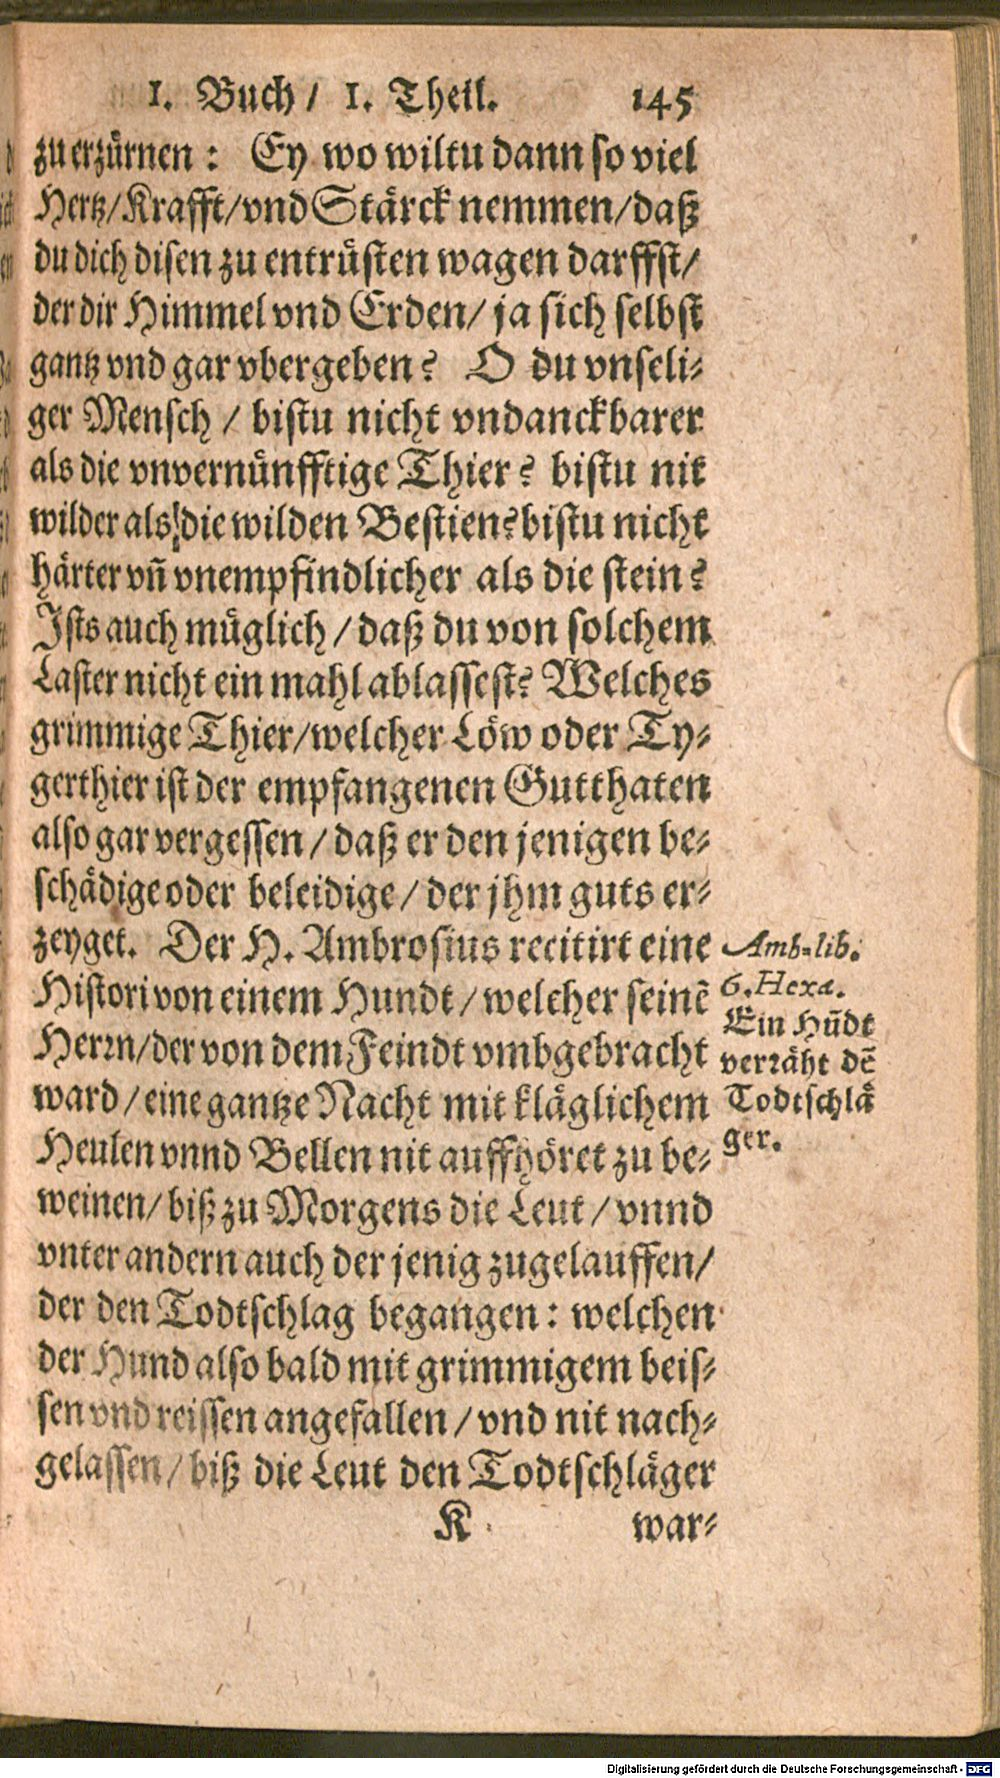 1. Buch/ 1. Theil. 145
zu erzürnen: Ey wo wiltu dann so viel
Hertz/Krafft/vnd Stärck nemmen/daß
du dich disen zu entrüsten wagen darffst/
der dir Himmel vnd Erden/ ja sich selbst
gantz vnd gar vbergeben? O du vnseli-
ger Mensch / bistu nicht vndanckbarer
als die vnvernünfftige Thier? bistu nit
wilder als die wilden Bestien? bistu nicht
härter vñ vnempfindlicher als die stein?
Ists auch müglich / daß du von solchem
Laster nicht ein mahl ablassest? Welches
grimmige Thier/welcher Löw oder Ty-
gerthier ist der empfangenen Gutthaten
also gar vergessen / daß er den jenigen be-
schädige oder beleidige/ der jhm guts er-
zeyget. Der H. Ambrosius recitirt eine
Histori von einem Hundt / welcher seinẽ
Herrn/der von dem Feindt vmbgebracht
ward / eine gantze Nacht mit kläglichem
Heulen vnnd Bellen nit auffhöret zu be-
weinen/ biß zu Morgens die Leut / vnnd
vnter andern auch der jenig zugelauffen/
der den Todtschlag begangen: welchen
der Hund also bald mit grimmigem beis-
sen vnd reissen angefallen / vnd nit nach-
gelassen / biß die Leut den Todtschläger
K war-
Amb. lib.
6. Hexa.
Ein Hũdt
verräht dẽ
Todtschlä
ger.
Digitalisierung gefördert durch die Deutsche Forschungsgemeinschaft - DFG